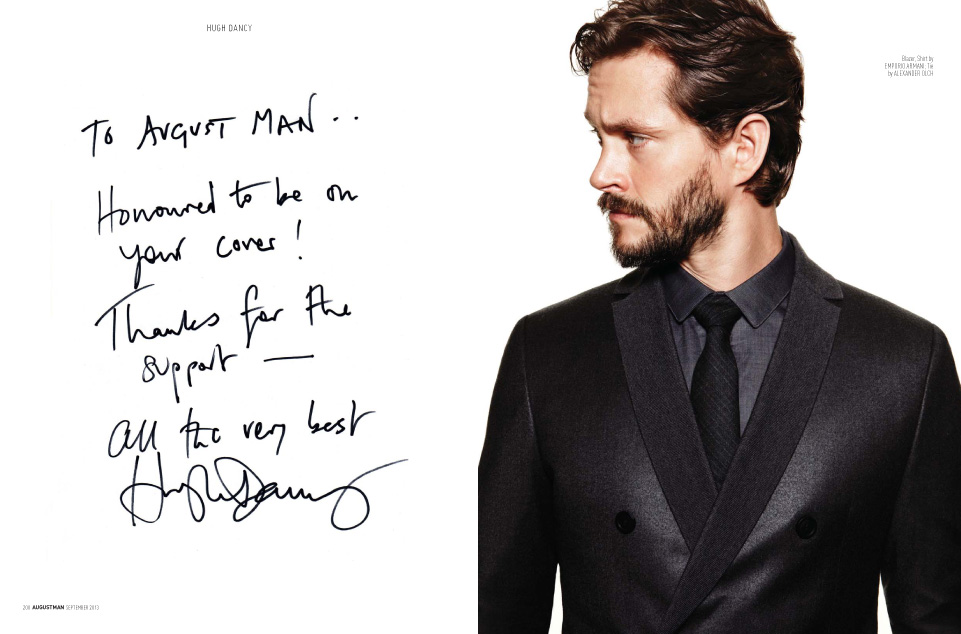 HUGH DANCY
TO AUGUST MAN..
Honoured to be on
your cover!
Thanks for the
support —
All the very best
Hugh Dancy
Blazer, Shirt by
EMPORIO ARMANI; Tie
by ALEXANDER OLCH
200 AUGUSTMAN SEPTEMBER 2013